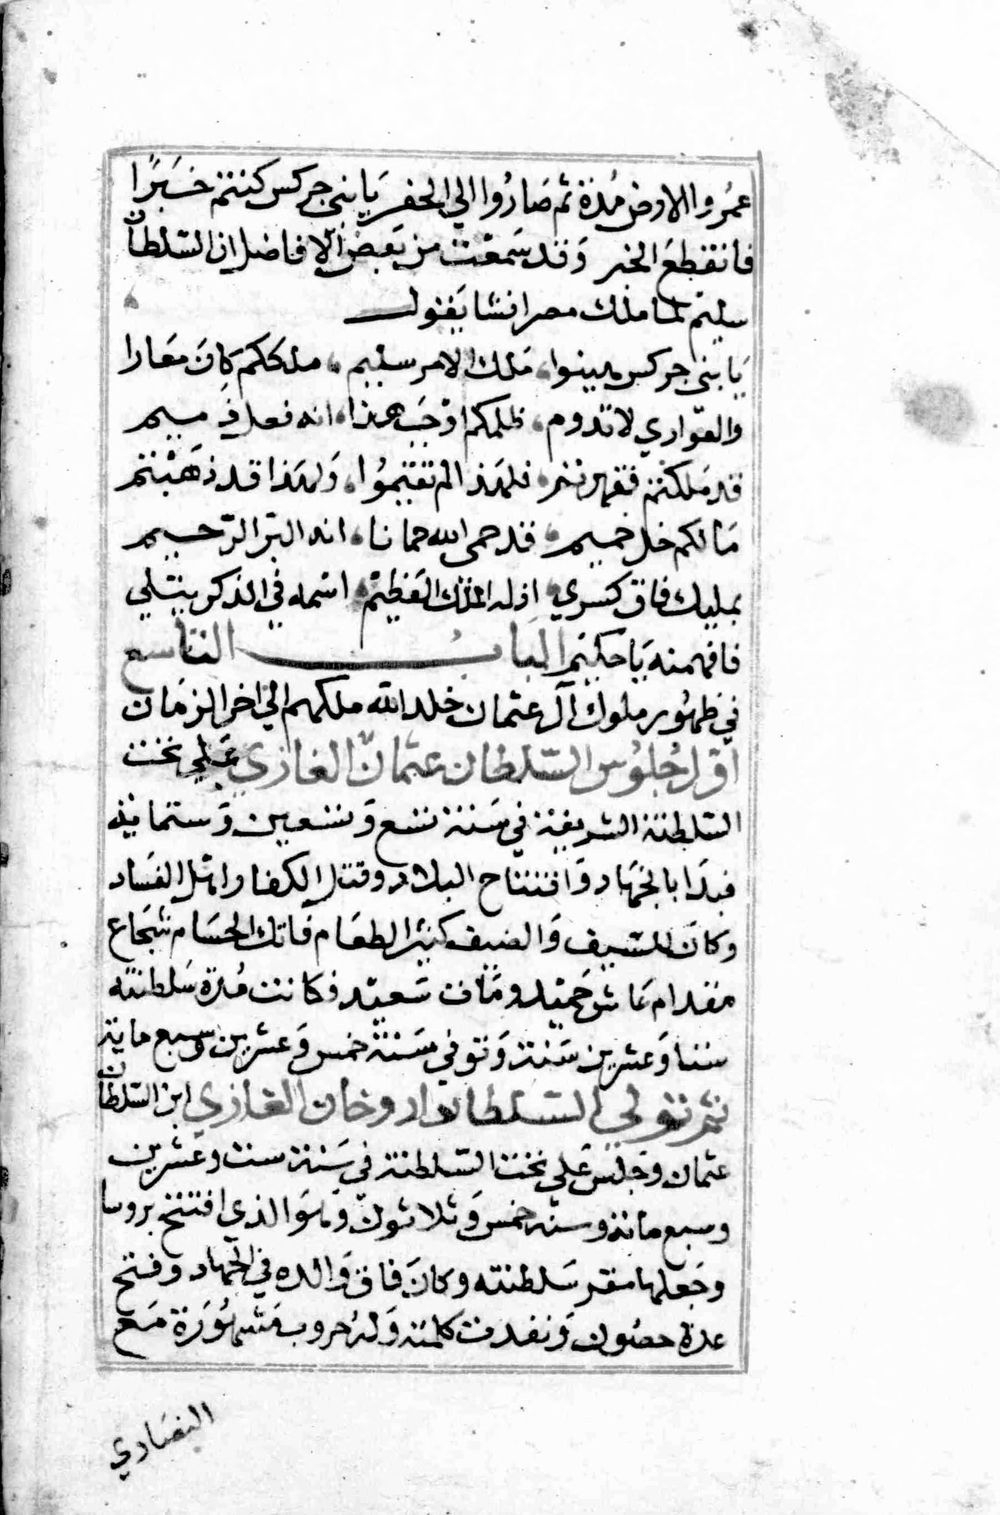 عمُروا الارض مُدّة ثم صَارُوا الي الحفر يَا بني جركس كنتم خَبَرًا
فانقطعَ الخبر وَقد سَمعْت من بَعض الافاضل ان السّلطان
سليم لما ملك مصر انشا يَقول
يَا بني جركس بينوا، مَلك الامر سليم، ملككم كانَ مَعارا
والعوّاري لا تدوم، ظلمكم اوْجَب هذا، انه فعل ذميم
قد مَلكتم فقهرتم، فلهذا لم تقيمُوا، وَلهذا قد ذهَبْتم
مَا لكم خل حميم، قد حمى الله حمانا، انه البرّ الرّحيم
بمليك فاق كسري، اذ له الملك العَظيْم، اسْمه في الذكر يتلي
فافهمنه يَا حكيْم البابُ التاسع
في ظهُور ملوك آل عثمان خلد الله ملكهم الي اخر الزمَان
اوّل جُلوُس السّلطان عثمان الغازي عَلي تخت
السّلطنة الشريفة في سَنة تسع وَتسعين وَستماية
فبدَا بالجهَاد وَافتتاح البلاد وقتل الكفار اهل الفسَاد
وكانَ للسّيف وَالضيف كثير الطعَام فاتك الحسَام شجَاع
مقدام عَاش حَميْد ومَات سَعيْد فكانت مُدة سَلطنته
ستا وَعشرين سَنة وَتوفي سَنة خمس وَعشرين وسبع ماية
ثم تولي السّلطان اروخان الغازي ابن السّلطان
عثمان وجَلسَ عَلي تخت السّلطنة في سَنة ست وعشرين
وسبع مائة وسنه خمس وَثلاثون وَهوَ الذي افتتح بروسا
وجَعلها مقر سَلطنته وكانَ فاق وَالده في الجهاد وفتح
عدة حصُون وَنفدت كلمته وَلهُ حروب مَشهُورَة مَع
النصَاري